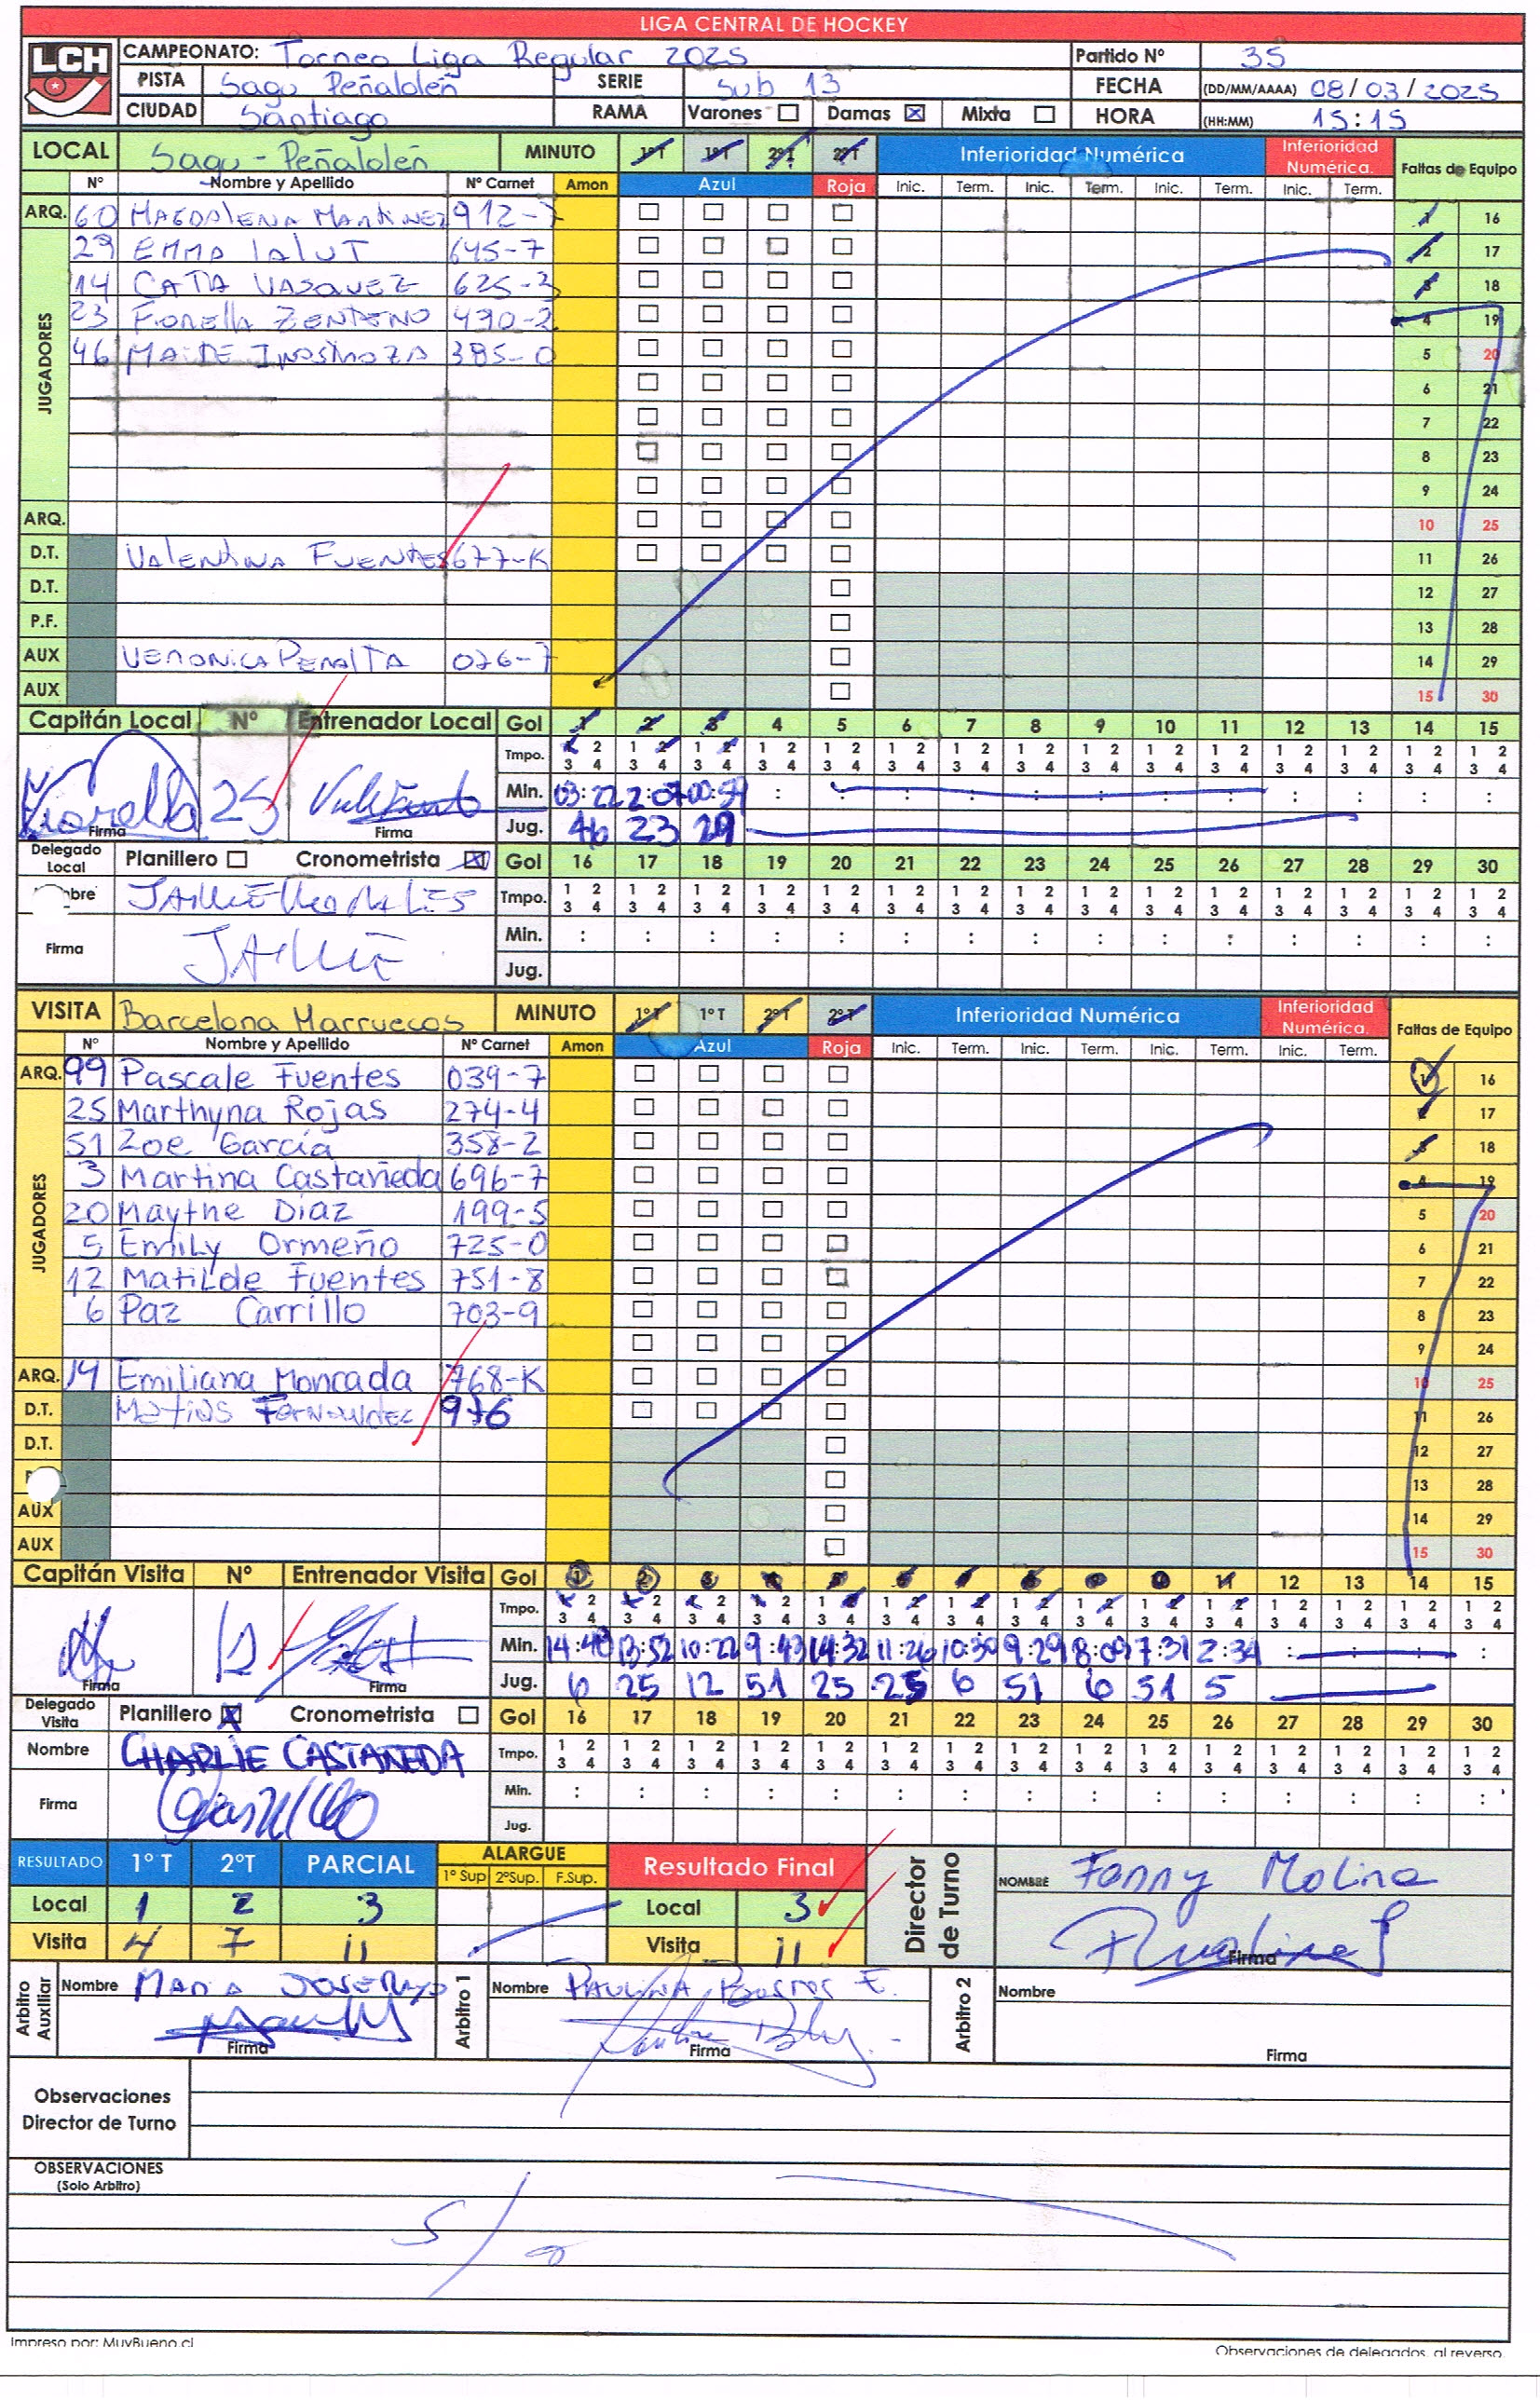 LIGA CENTRAL DE HOCKEY
LCH
CAMPEONATO: Torneo Liga Regular 2025 Partido Nº 35
PISTA Sagu Peñalolén SERIE Sub 13 FECHA (DD/MM/AAAA) 08/03/2025
CIUDAD Santiago RAMA Varones Damas Mixta HORA (HH:MM) 15:15
LOCAL Sagu - Peñalolén MINUTO 1ºT 1ºT 2ºT 2ºT Inferioridad Numérica Inferioridad Numérica. Faltas de Equipo
Nº Nombre y Apellido Nº Carnet Amon Azul Roja Inic. Term. Inic. Term. Inic. Term. Inic. Term.
ARQ. 60 MAGDALENA MARTINEZ 912-7 1 16
JUGADORES
29 EMMA 645-7 2 17
14 CATA VASQUEZ 625-3 3 18
23 FIORELLA ZENTENO 490-2 4 19
46 MAIDE INOSTROZA 385-0 5 20
6 21
7 22
8 23
9 24
ARQ. 10 25
D.T. VALENTINA FUENTES 677-K 11 26
D.T. 12 27
P.F. 13 28
AUX VERONICA PERALTA 076-7 14 29
AUX 15 30
Capitán Local Nº Entrenador Local Gol 1 2 3 4 5 6 7 8 9 10 11 12 13 14 15
Tmpo. 1 2 1 2 1 2 1 2 1 2 1 2 1 2 1 2 1 2 1 2 1 2 1 2 1 2 1 2 1 2
3 4 3 4 3 4 3 4 3 4 3 4 3 4 3 4 3 4 3 4 3 4 3 4 3 4 3 4 3 4
Fiorella 23 Min. 03:22 2:07 00:59 : : : : : : : : : : : :
Firma Firma Jug. 46 23 29
Delegado Local Planillero Cronometrista Gol 16 17 18 19 20 21 22 23 24 25 26 27 28 29 30
Nombre JAIME MORALES Tmpo. 1 2 1 2 1 2 1 2 1 2 1 2 1 2 1 2 1 2 1 2 1 2 1 2 1 2 1 2 1 2
3 4 3 4 3 4 3 4 3 4 3 4 3 4 3 4 3 4 3 4 3 4 3 4 3 4 3 4 3 4
Firma JAIME Min. : : : : : : : : : : : : : : :
Jug.
VISITA Barcelona Marruecos MINUTO 1ºT 1ºT 2ºT 2ºT Inferioridad Numérica Inferioridad Numérica. Faltas de Equipo
Nº Nombre y Apellido Nº Carnet Amon Azul Roja Inic. Term. Inic. Term. Inic. Term. Inic. Term.
ARQ. 99 Pascale Fuentes 039-7 1 16
JUGADORES
25 Marthyna Rojas 274-4 2 17
51 Zoe García 358-2 3 18
3 Martina Castañeda 696-7 4 19
20 Maythe Díaz 199-5 5 20
5 Emily Ormeño 725-0 6 21
12 Matilde Fuentes 751-8 7 22
6 Paz Carrillo 703-9 8 23
9 24
ARQ. 14 Emiliana Moncada 768-K 10 25
D.T. Matias Fernandez 976 11 26
D.T. 12 27
13 28
AUX 14 29
AUX 15 30
Capitán Visita Nº Entrenador Visita Gol 1 2 3 4 5 6 7 8 9 10 11 12 13 14 15
Tmpo. 1 2 1 2 1 2 1 2 1 2 1 2 1 2 1 2 1 2 1 2 1 2 1 2 1 2 1 2 1 2
3 4 3 4 3 4 3 4 3 4 3 4 3 4 3 4 3 4 3 4 3 4 3 4 3 4 3 4 3 4
12 Min. 14:48 13:52 10:22 9:43 14:32 11:26 10:30 9:29 8:09 7:31 2:34 : : : :
Firma Firma Jug. 6 25 12 51 25 25 6 51 6 51 5
Delegado Visita Planillero Cronometrista Gol 16 17 18 19 20 21 22 23 24 25 26 27 28 29 30
Nombre CHARLIE CASTAÑEDA Tmpo. 1 2 1 2 1 2 1 2 1 2 1 2 1 2 1 2 1 2 1 2 1 2 1 2 1 2 1 2 1 2
3 4 3 4 3 4 3 4 3 4 3 4 3 4 3 4 3 4 3 4 3 4 3 4 3 4 3 4 3 4
Firma Min. : : : : : : : : : : : : : : :
Jug.
RESULTADO 1º T 2ºT PARCIAL ALARGUE Resultado Final Director de Turno NOMBRE Fanny Molina
1º Sup 2ºSup. F.Sup.
Local 1 2 3 Local 3
Visita 4 7 11 Visita 11 Firma
Arbitro Auxiliar Nombre MARIA JOSE Arbitro 1 Nombre PAULINA BUSTOS E. Arbitro 2 Nombre
Firma Firma Firma
Observaciones
Director de Turno
OBSERVACIONES
(Solo Arbitro)
S/O
Impreso por: MuyBueno.cl Observaciones de delegados, al reverso.